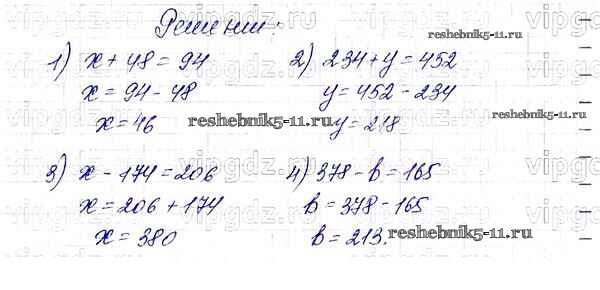 Решения:
1) x + 48 = 94
x = 94 - 48
x = 46
2) 234 + y = 452
y = 452 - 234
y = 218
3) x - 174 = 206
x = 206 + 174
x = 380
4) 378 - в = 165
в = 378 - 165
в = 213.
reshebnik5-11.ru
reshebnik5-11.ru
reshebnik5-11.ru
vipgdz.ru